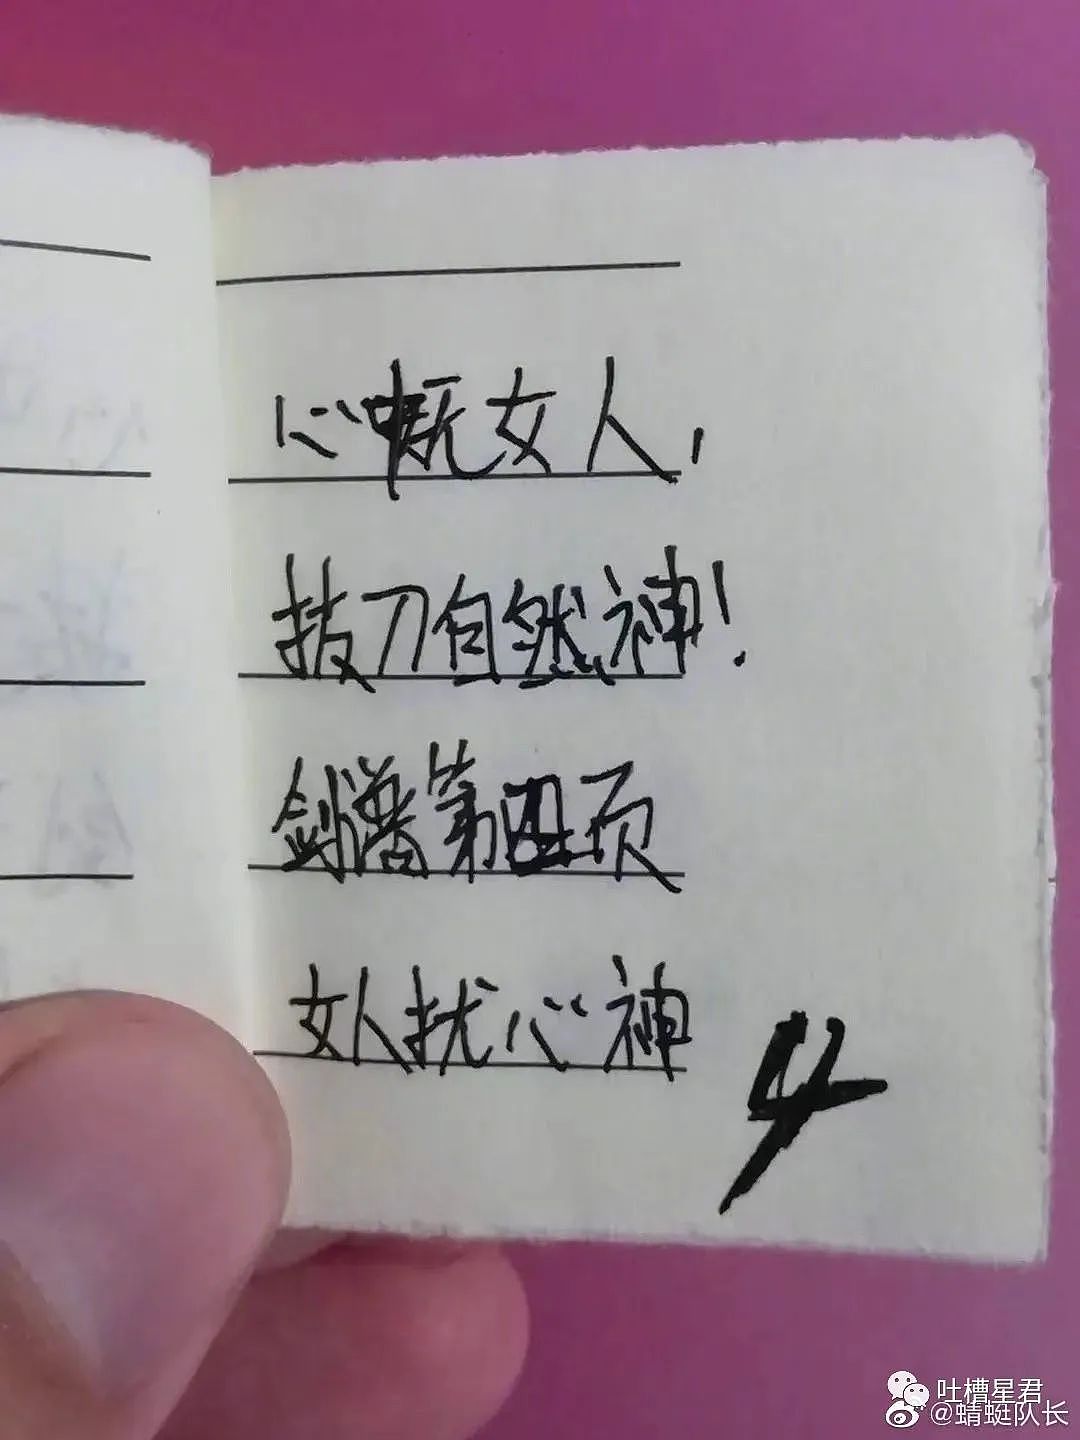 心慨女人,
拔刀自然神!
剑谱第四页
女人扰心神
4
吐槽星君
@蜻蜓队长